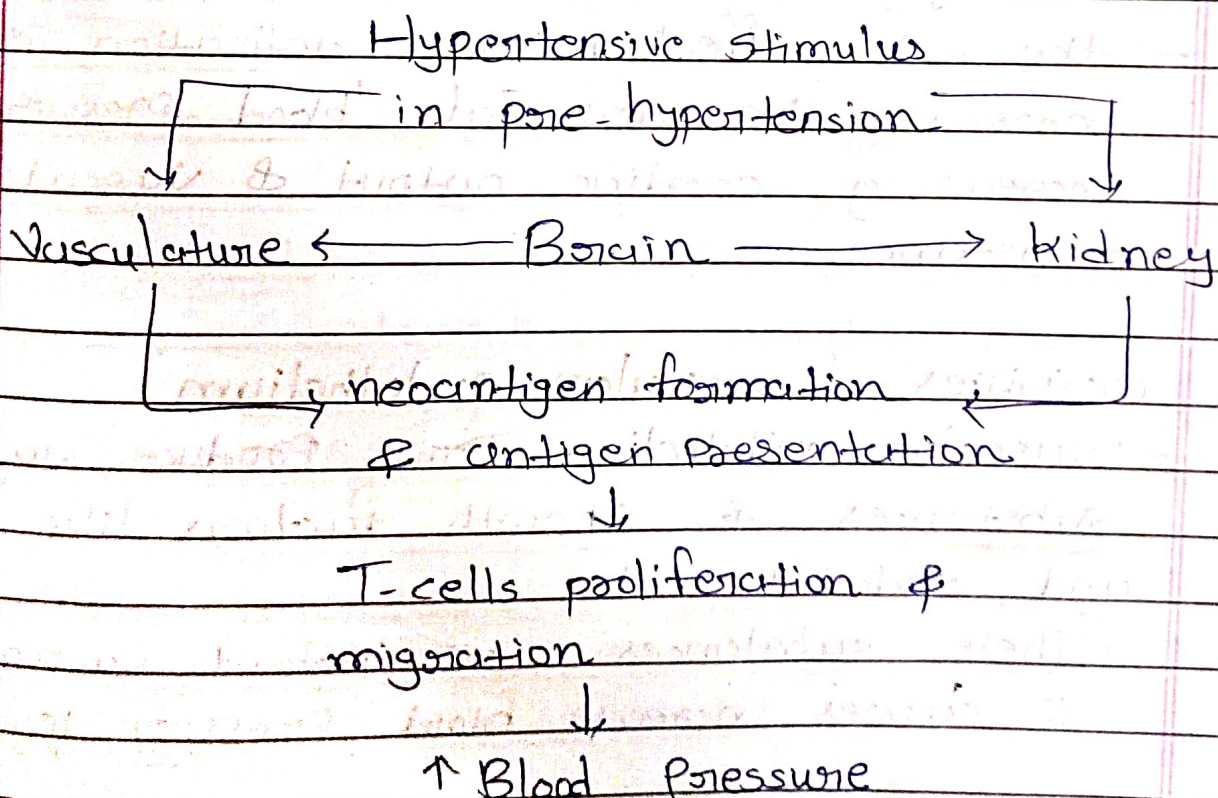 Hypertensive stimulus
in pre-hypertension
Vasculature ← Brain → kidney
neoantigen formation
& antigen presentation
↓
T-cells proliferation &
migration
↓
↑ Blood Pressure